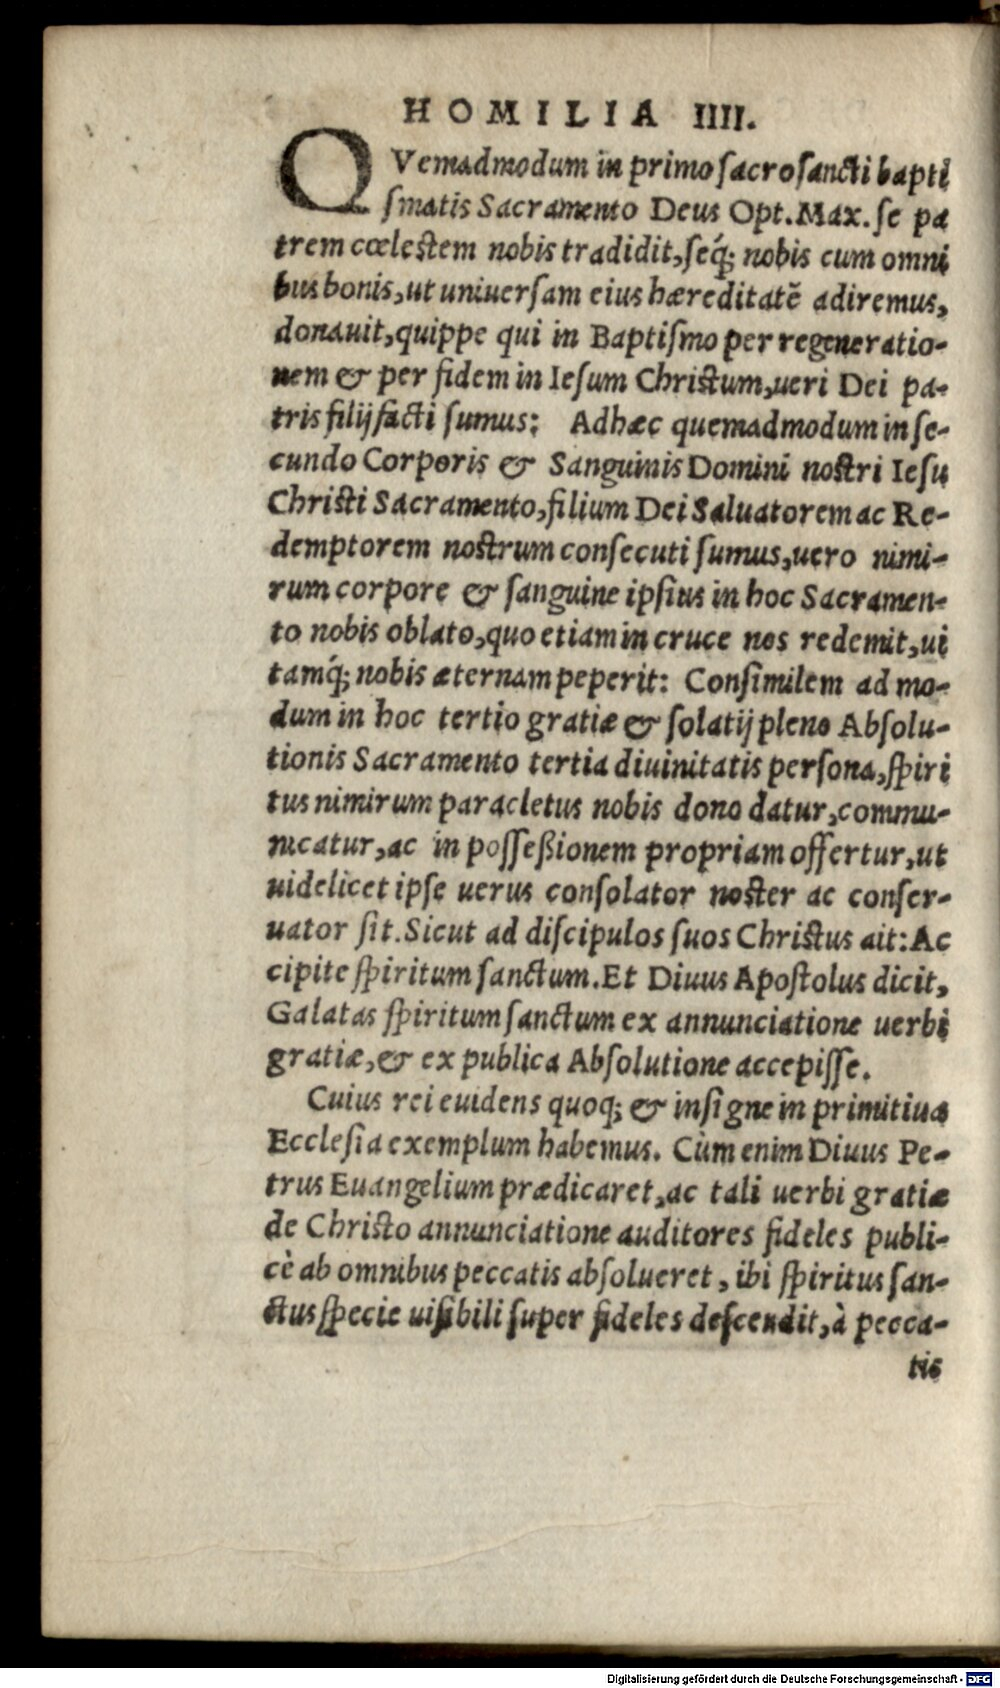 HOMILIA IIII.
QVemadmodum in primo sacrosancti bapti
smatis Sacramento Deus Opt. Max. se pa
trem cœlestem nobis tradidit, seq́; nobis cum omni
bus bonis, ut uniuersam eius hæreditatẽ adiremus,
donauit, quippe qui in Baptismo per regeneratio-
nem & per fidem in Iesum Christum, ueri Dei pa-
tris filij facti sumus: Adhæc quemadmodum in se-
cundo Corporis & Sanguinis Domini nostri Iesu
Christi Sacramento, filium Dei Saluatorem ac Re-
demptorem nostrum consecuti sumus, uero nimi-
rum corpore & sanguine ipsius in hoc Sacramen-
to nobis oblato, quo etiam in cruce nos redemit, ui
tamq́; nobis æternam peperit: Consimilem ad mo-
dum in hoc tertio gratiæ & solatij pleno Absolu-
tionis Sacramento tertia diuinitatis persona, spiri
tus nimirum paracletus nobis dono datur, commu-
nicatur, ac in posseßionem propriam offertur, ut
uidelicet ipse uerus consolator noster ac conser-
uator sit. Sicut ad discipulos suos Christus ait: Ac
cipite spiritum sanctum. Et Diuus Apostolus dicit,
Galatas spiritum sanctum ex annunciatione uerbi
gratiæ, & ex publica Absolutione accepisse.
Cuius rei euidens quoq; & insigne in primitiua
Ecclesia exemplum habemus. Cùm enim Diuus Pe-
trus Euangelium prædicaret, ac tali uerbi gratiæ
de Christo annunciatione auditores fideles publi-
cè ab omnibus peccatis absolueret, ibi spiritus san-
ctus specie uisibili super fideles descendit, à pecca-
tis
Digitalisierung gefördert durch die Deutsche Forschungsgemeinschaft - DFG